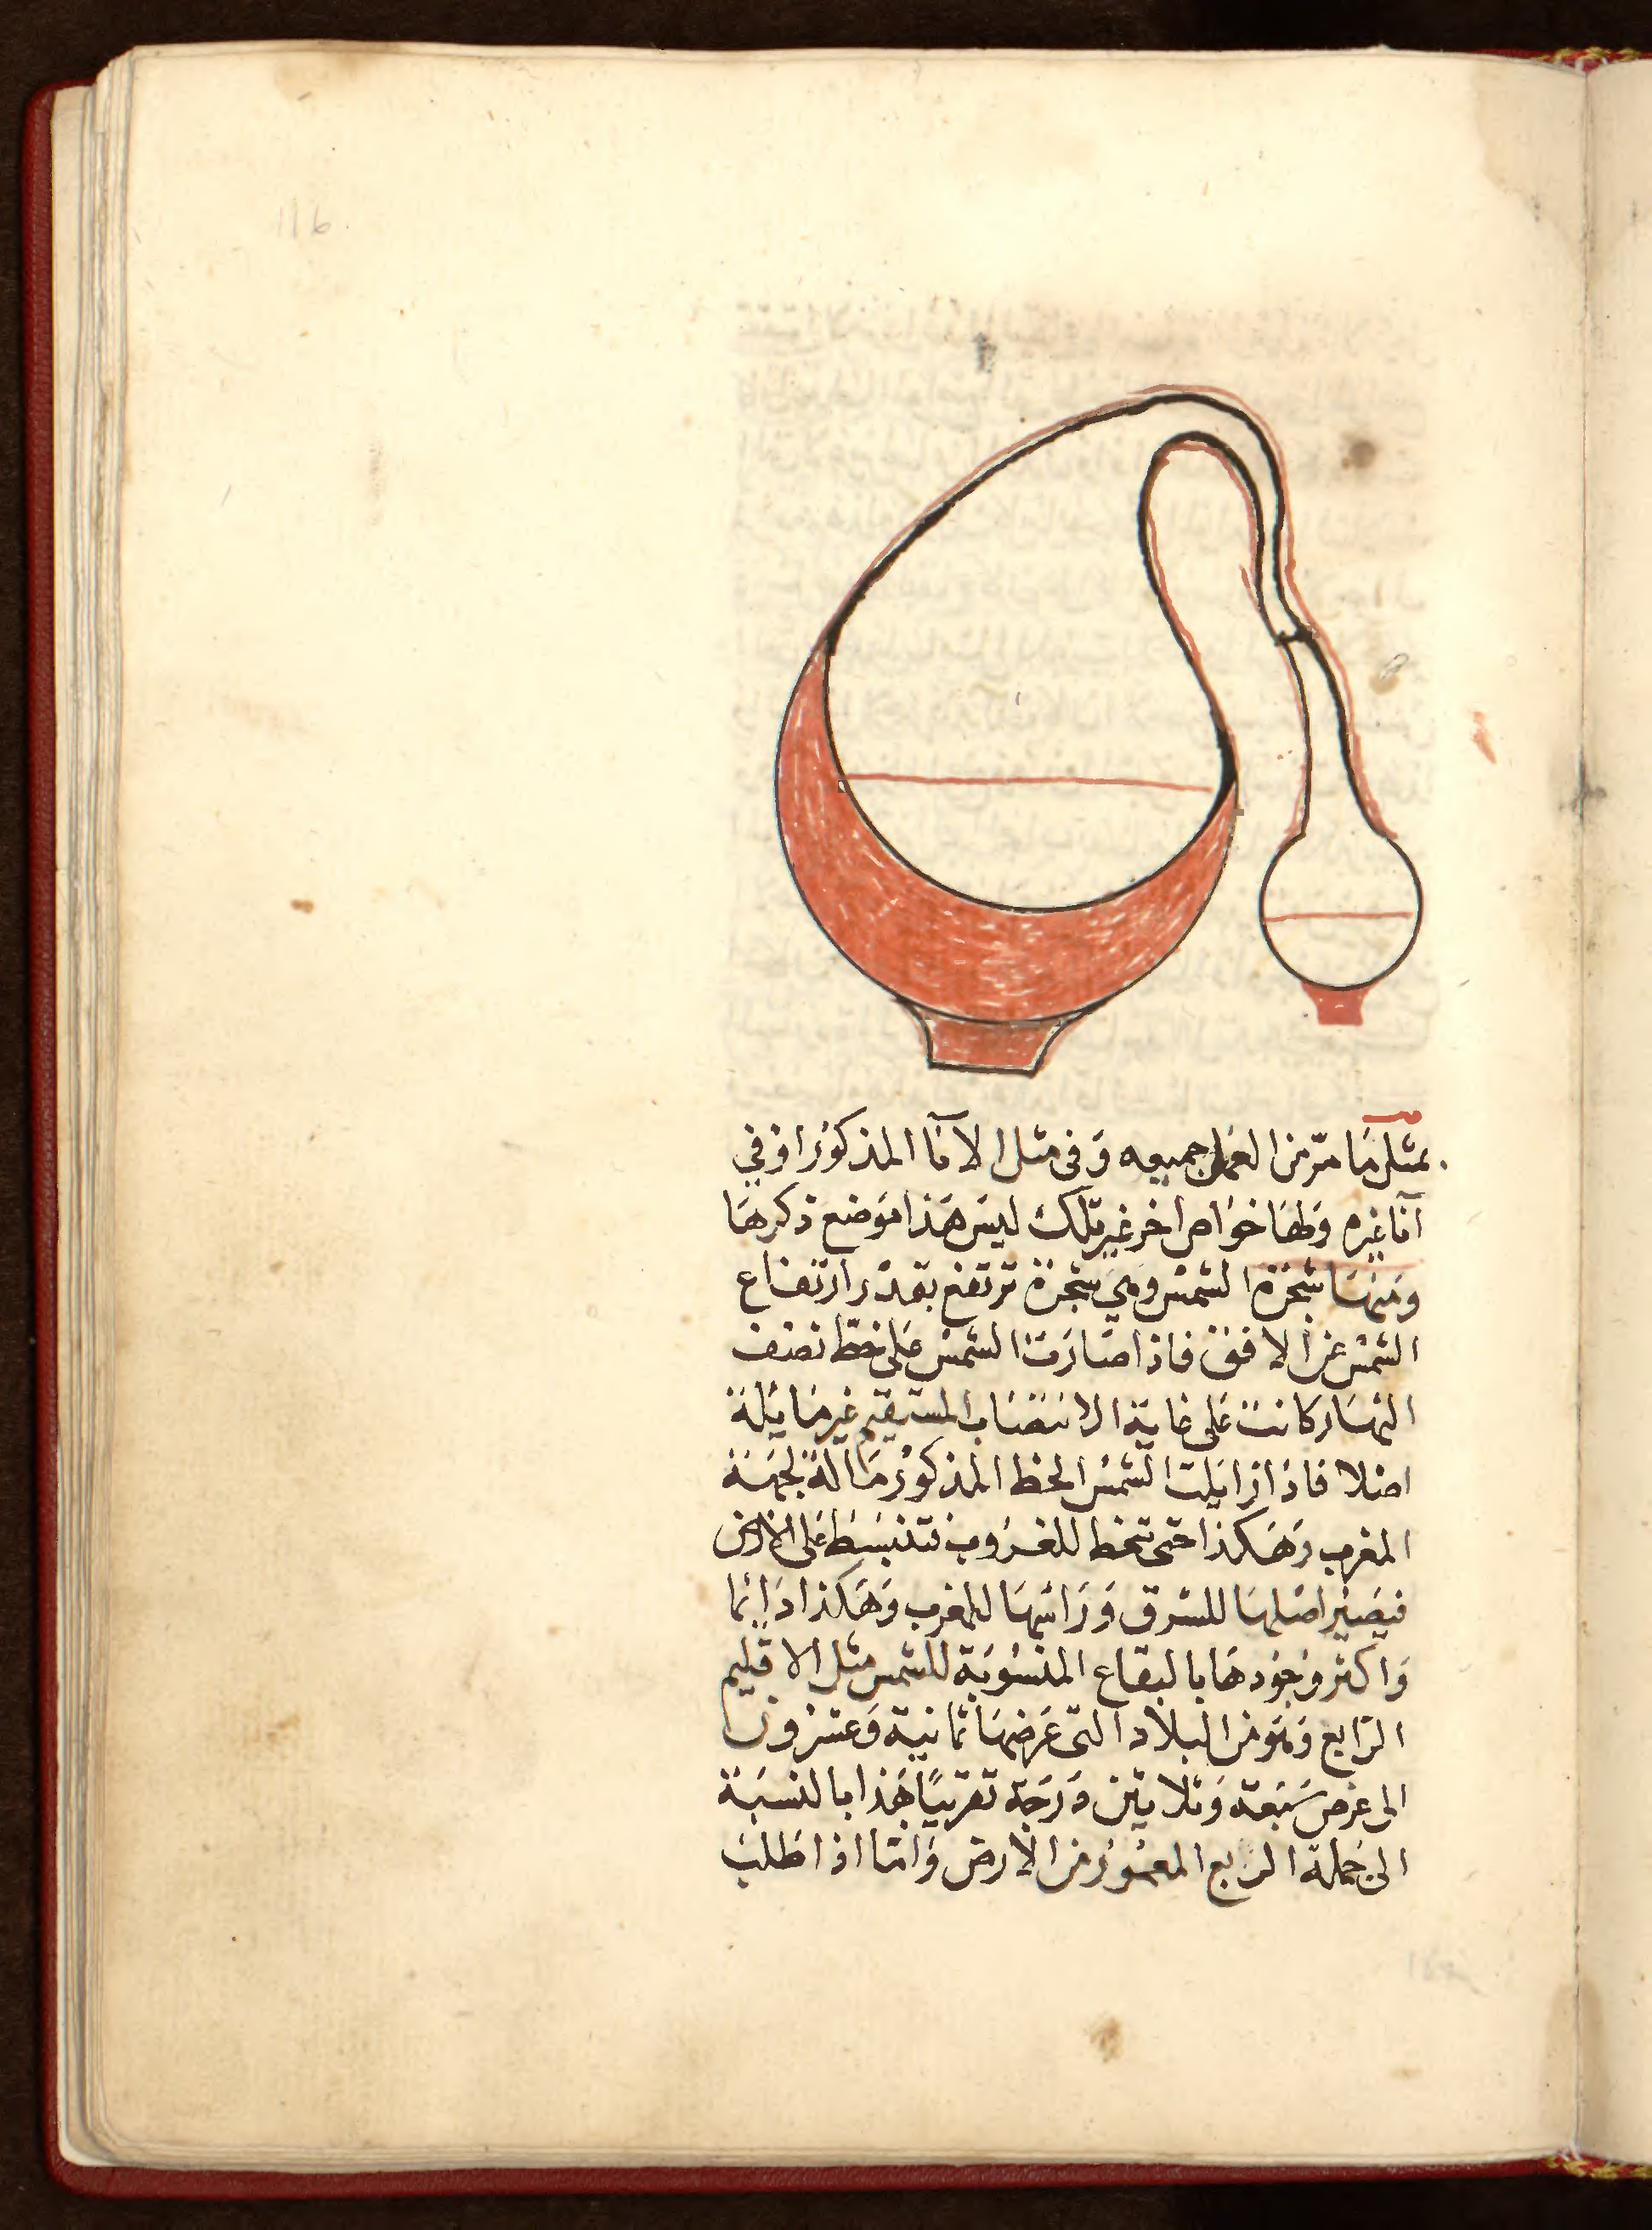 116
بمثل ما مرّ من العمل جميعه وَفى مثل الاناآ المذكور اوفي
آناغيره وَلها خوَاص اخر غير تلك ليس هَذا موَضع ذكرهَا
وَمنهَا شجرَة الشمسْ وهي شجرة ترتفع بقدْر ارتفاع
الشمسْ عن الافق فاذا صَارَت الشمسْ عَلى خطّ نصف
النهَار كانت عَلى غاية الانتصَاب المستقيم غير مَايلة
اصْلا فاذا زايلت الشمسْ الخط المذكورْ مَالة لجهَة
المغرب وَهَكذا حتى تنحط للغرُوب فتنبسَط عَلى الارض
فيصَير اصْلهَا للشرق وَرَاسْهَا للمغرب وَهَكذا دَايما
وَاكثر وجوُدهَا بالبقاع المنسُوبَة للشمس مثل الاقليم
الرّابع وَهوَ من البلاد التى عَرضهَا ثمانية وَعشرون
الى عرض سَبعَة وَثلاثين دَرَجة تقريبًا هَذا بالنسبَة
الى جملة الربع المعمُور من الارض وَامّا اذا طلبَ